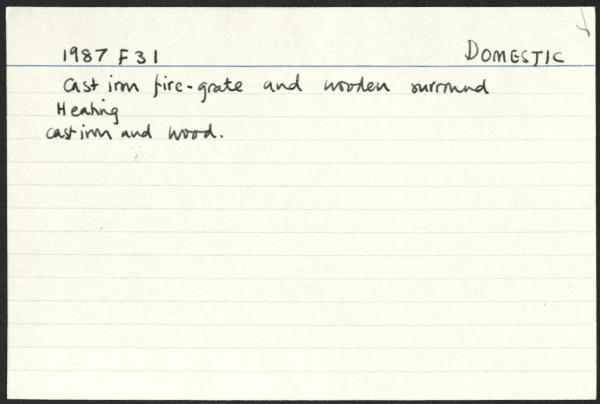 1987 F31 DOMESTIC
Cast iron fire-grate and wooden surround
Heating
cast iron and wood.